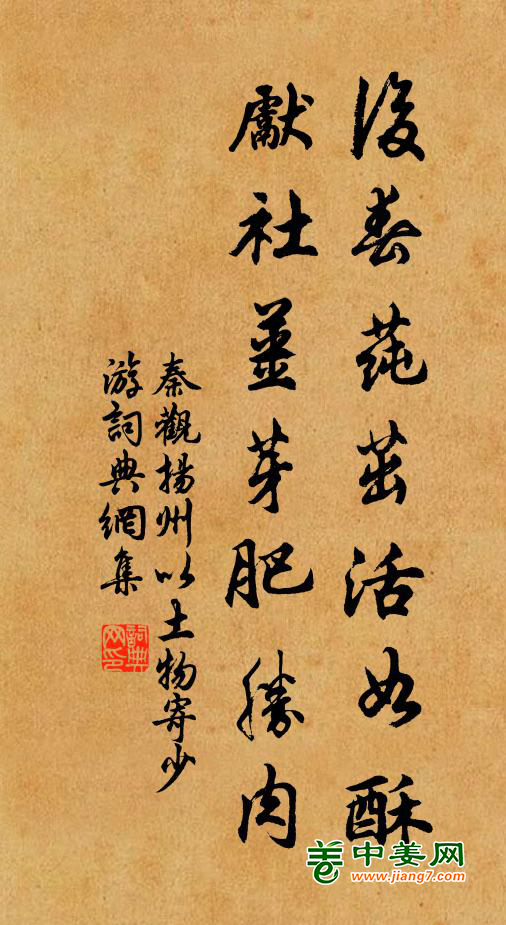 後春莼茁活如酥
獻社薑芽肥勝肉
秦觀揚州以土物寄少
游詞典網集
詞典网印
中姜网
www.jiang7.com